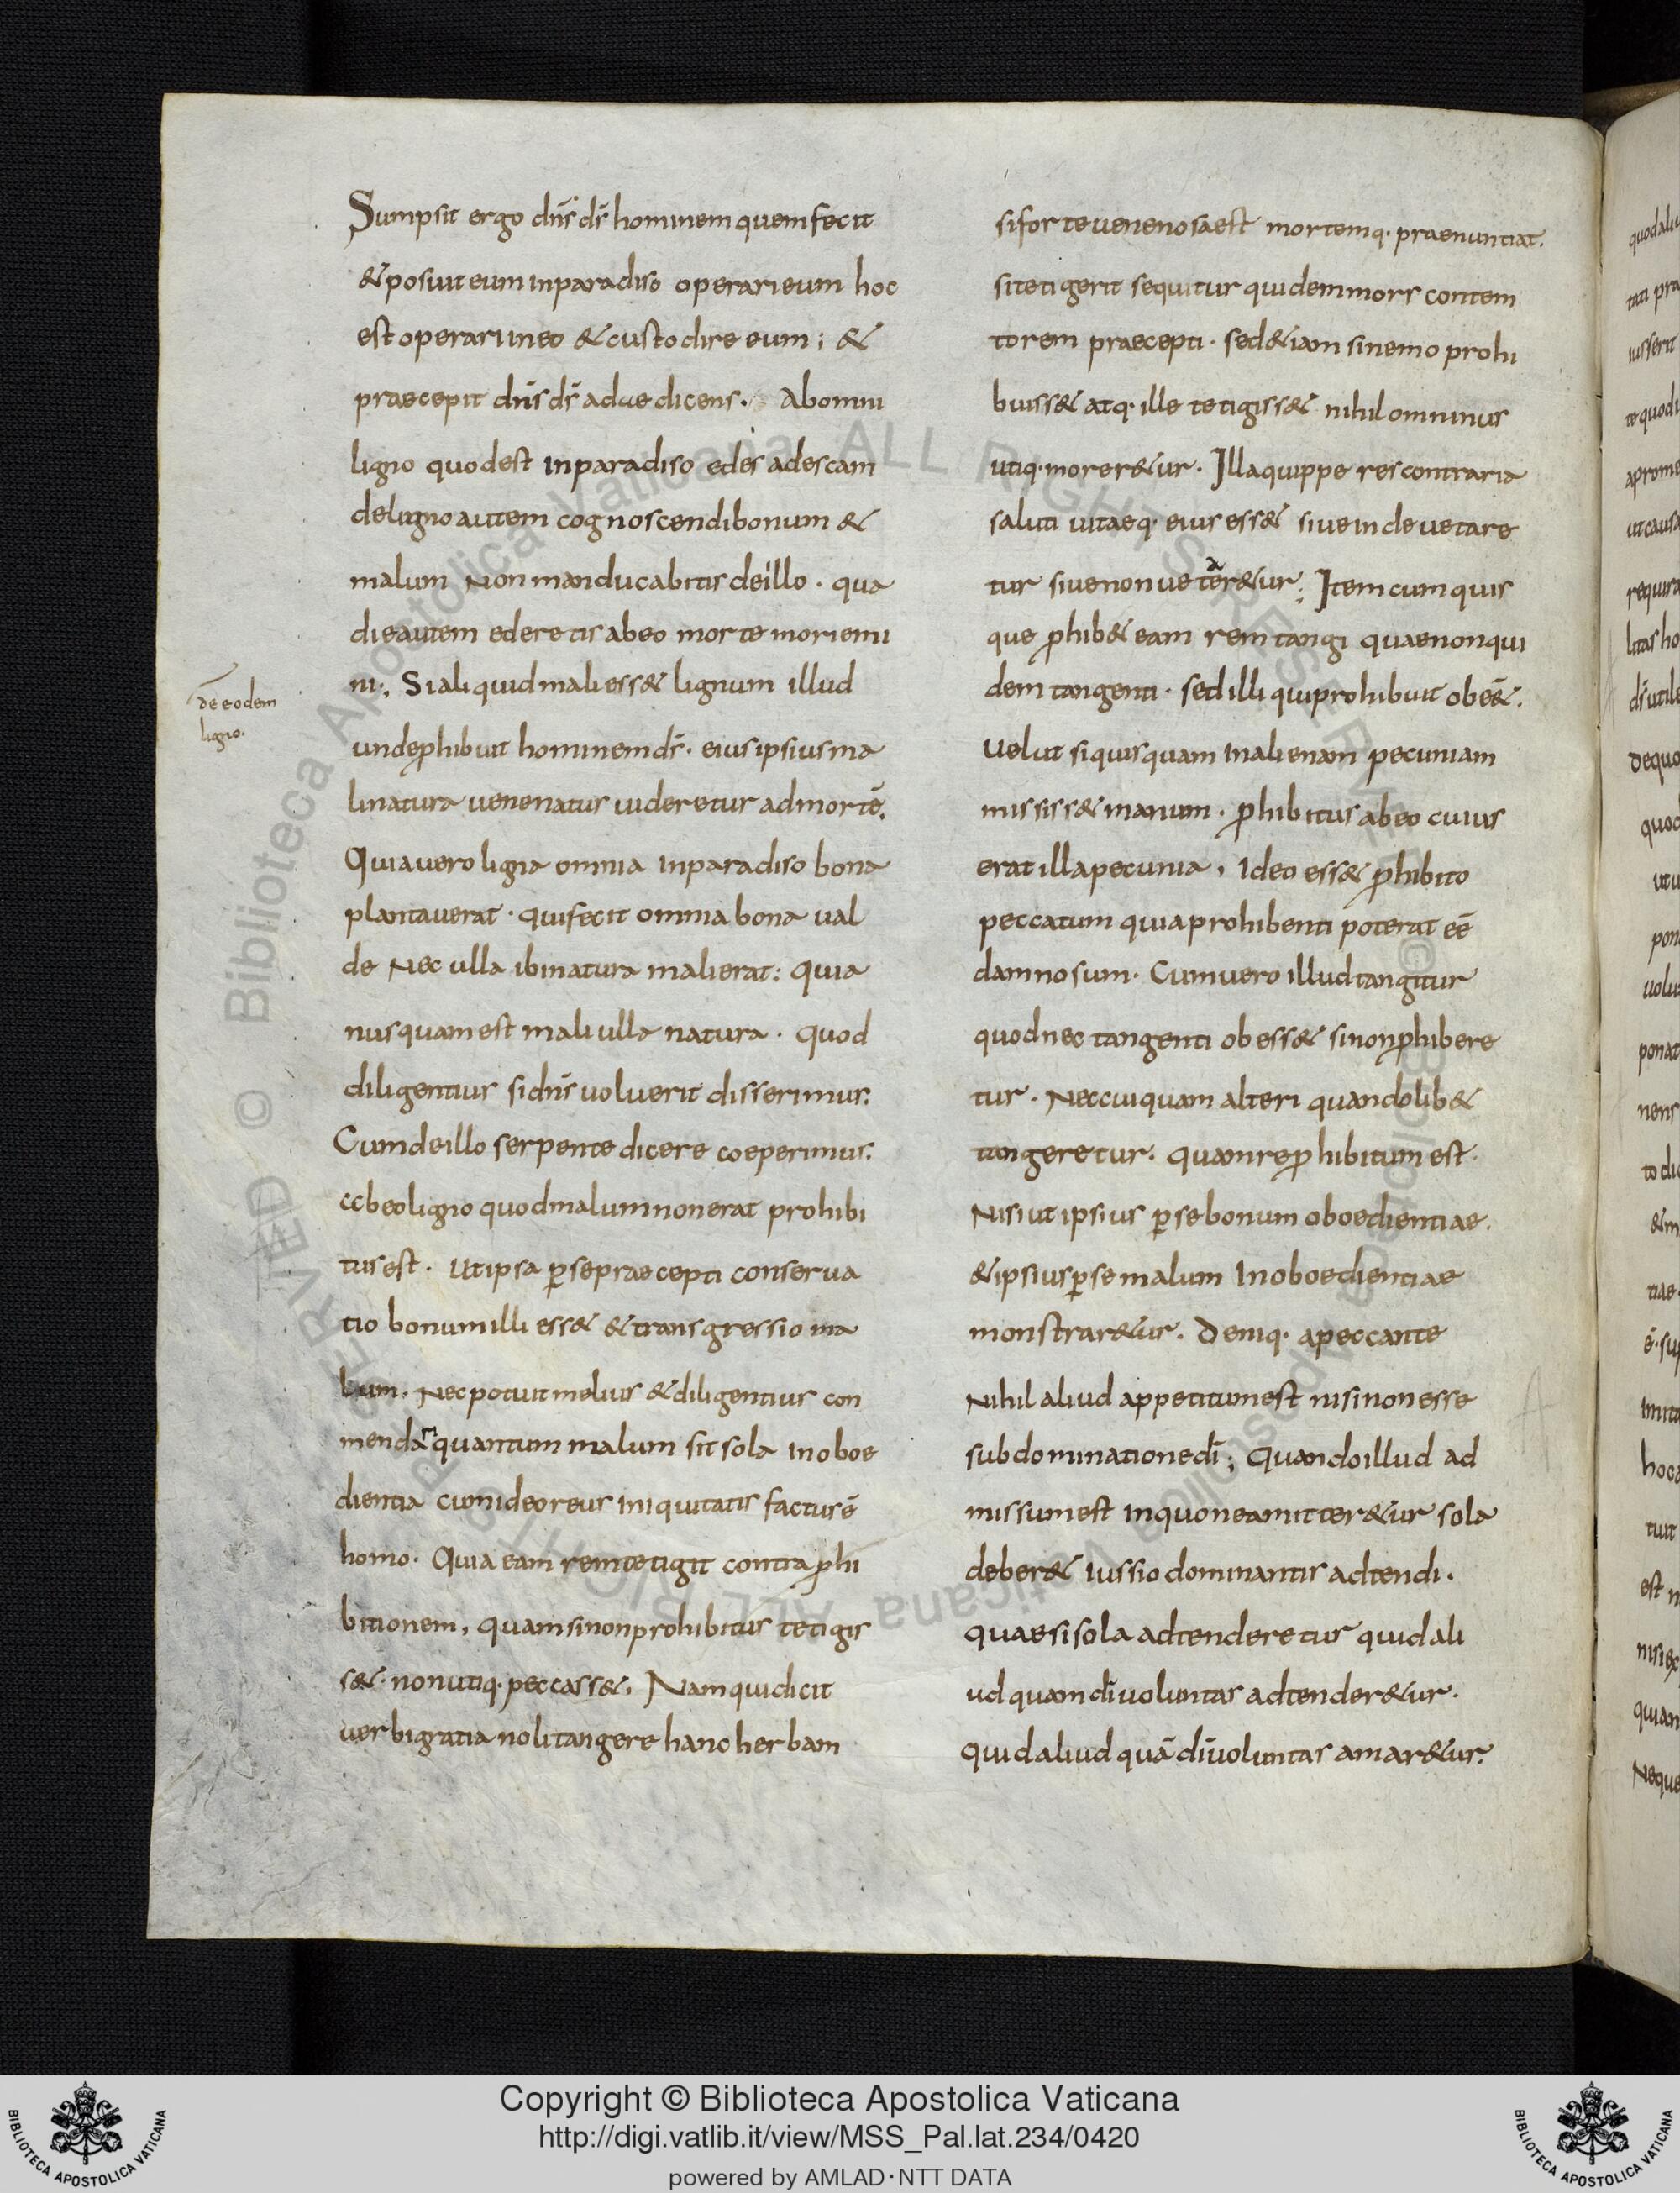 Sumpsit ergo dn̄s ds̄ hominem quem fecit
& posuit eum in paradiso operari eum hoc
est operari in eo & custodire eum; &
praecepit dn̄s ds̄ adae dicens. Ab omni
ligno quod est in paradiso edes ad escam
de ligno autem cognoscendi bonum &
malum Non manducabitis de illo. qua
die autem ederetis ab eo morte moriemi
ni;, Si aliquid mali ess& lignum illud
unde ꝓhibuit hominem ds̄. eius ipsius ma
li natura uenenatus uideretur ad mortē.
Quia uero ligna omnia in paradiso bona
plantauerat. qui fecit omnia bona ual
de Nec ulla ibi natura mali erat: quia
nusquam est mali ulla natura. quod
diligentius si dn̄s uoluerit disserimus:
Cum de illo serpente dicere coeperimus:
ab eo ligno quod malum non erat prohibi
tus est. Ut ipsa ꝑ se praecepti conserua
tio bonum illi ess& & transgressio ma
lum. Nec potuit melius & diligentius con
mendar quantum malum sit sola inoboe
dientia cum ideo reus iniquitatis factus ē
homo. Quia eam rem tetigit contra ꝓhi
bitionem, quam si non prohibitus tetigis
s&. non utiq. peccass&, Nam qui dicit
uerbi gratia noli tangere hanc herbam
de eodem
ligno.
si forte uenenosa est mortemq. praenuntiat.
si tetigerit sequitur quidem mors contem
torem praecepti. sed &iam si nemo prohi
buiss& atq. ille tetigiss& nihilominus
utiq. morer&ur. Illa quippe res contraria
saluti uitaeq. eius ess& siue inde uetare
tur siue non uetar&ur; Item cum quis
que ꝓhib& eam rem tangi quae non qui
dem tangenti. sed illi qui prohibuit obē&.
Uelut si quisquam in alienam pecuniam
misiss& manum. ꝓhibitus ab eo cuius
erat illa pecunia, Ideo ess& ꝓhibito
peccatum quia prohibenti poterat eē
damnosum. Cum uero illud tangitur
quod nec tangenti obess& si non ꝓhibere
tur. Nec cuiquam alteri quandolib&
tangeretur. quam re ꝓhibitum est.
Nisi ut ipsius ꝑ se bonum oboedientiae.
& ipsius ꝑ se malum Inoboedientiae
monstrar&ur. Deniq. a peccante
Nihil aliud appetitum est nisi non esse
sub dominatione dī; Quando illud ad
missum est in quo ne amitter&ur sola
deber& iussio dominantis adtendi.
quae si sola adtenderetur quid ali
ud quam dī uoluntas adtender&ur.
quid aliud quā dī uoluntas amar&ur?
Copyright © Biblioteca Apostolica Vaticana
http://digi.vatlib.it/view/MSS_Pal.lat.234/0420
powered by AMLAD·NTT DATA
BIBLIOTECA APOSTOLICA VATICANA
BIBLIOTECA APOSTOLICA VATICANA